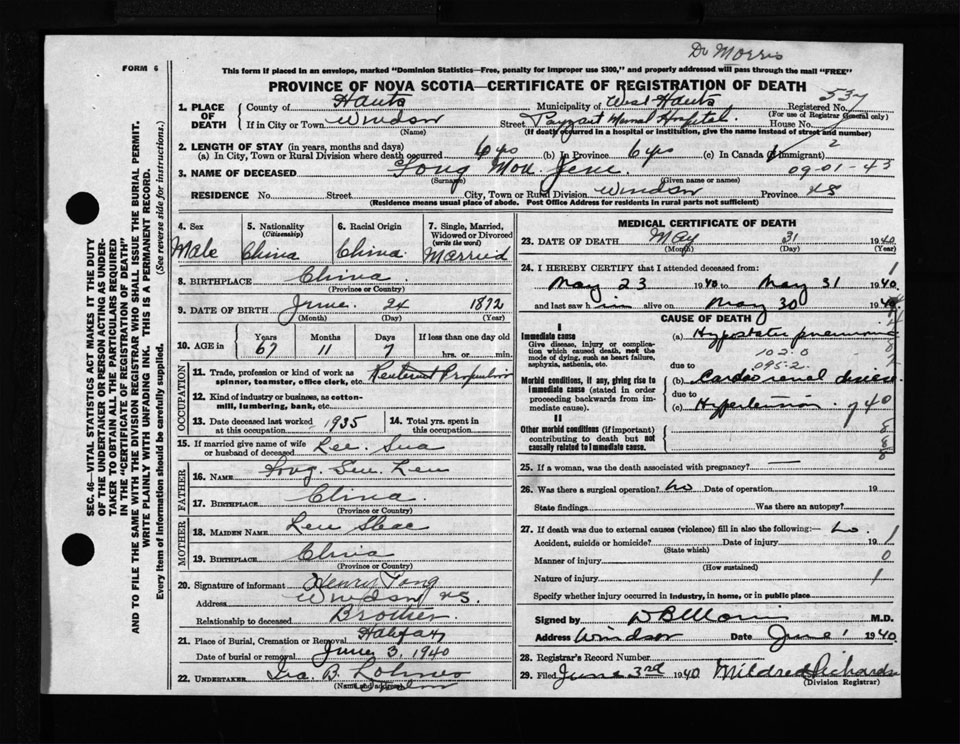 Dr Morris
FORM 6
This form if placed in an envelope, marked "Dominion Statistics—Free, penalty for improper use $300," and properly addressed will pass through the mail "FREE"
PROVINCE OF NOVA SCOTIA—CERTIFICATE OF REGISTRATION OF DEATH
537
1. PLACE OF DEATH County of Hants Municipality of West Hants Registered No.
(For use of Registrar General only)
If in City or Town Windsor Street Payzant Memorial Hospital House No.
(Name) (If death occurred in a hospital or institution, give the name instead of street and number)
2. LENGTH OF STAY (in years, months and days)
(a) In City, Town or Rural Division where death occurred 6 yrs (b) In Province 6 yrs (c) In Canada (if immigrant) 2
3. NAME OF DECEASED Tong Mon Jene 09-01-43
(Surname) (Given name or names)
RESIDENCE No. Street City, Town or Rural Division Windsor Province NS
(Residence means usual place of abode. Post Office Address for residents in rural parts not sufficient)
4. Sex Male
5. Nationality (Citizenship) China
6. Racial Origin China
7. Single, Married, Widowed or Divorced (write the word) Married
8. BIRTHPLACE China
(Province or Country)
9. DATE OF BIRTH June 24 1872
(Month) (Day) (Year)
10. AGE in Years Months Days If less than one day old
67 11 7 hrs. or min.
OCCUPATION
11. Trade, profession or kind of work as spinner, teamster, office clerk, etc. Restaurant Proprietor
12. Kind of industry or business, as cotton-mill, lumbering, bank, etc.
13. Date deceased last worked at this occupation 1935
14. Total yrs. spent in this occupation
15. If married give name of wife or husband of deceased Lee Sua
FATHER
16. NAME
17. BIRTHPLACE China
(Province or Country)
MOTHER
18. MAIDEN NAME
19. BIRTHPLACE China
(Province or Country)
20. Signature of informant Henry Tong
Address Windsor N.S.
Relationship to deceased Brother
21. Place of Burial, Cremation or Removal Halifax
Date of burial or removal June 3, 1940
22. UNDERTAKER Ira B. Lohnes
(Name and address)
MEDICAL CERTIFICATE OF DEATH
23. DATE OF DEATH May 31 1940
(Month) (Day) (Year)
24. I HEREBY CERTIFY that I attended deceased from:
May 23 1940 to May 31 1940
and last saw him alive on May 30 1940
CAUSE OF DEATH
I
Immediate cause
Give disease, injury or complication which caused death, not the mode of dying, such as heart failure, asphyxia, asthenia, etc.
(a) Hypostatic pneumonia
102.0
due to 095-2
Morbid conditions, if any, giving rise to immediate cause (stated in order proceeding backwards from immediate cause).
(b) Cardio renal disease
due to
(c) Hypertension 740
II
Other morbid conditions (if important) contributing to death but not causally related to immediate cause.
25. If a woman, was the death associated with pregnancy? —
26. Was there a surgical operation? No Date of operation 19
State findings Was there an autopsy?
27. If death was due to external causes (violence) fill in also the following:— No 1
Accident, suicide or homicide? Date of injury 19
(State which)
Manner of injury 0
(How sustained)
Nature of injury 1
Specify whether injury occurred in industry, in home, or in public place
Signed by D B Morris M.D.
Address Windsor Date June 1 1940
28. Registrar's Record Number
29. Filed June 3rd 1940 Mildred Richards
(Division Registrar)
SEC. 46—VITAL STATISTICS ACT MAKES IT THE DUTY
OF THE UNDERTAKER OR PERSON ACTING AS UNDER-
TAKER TO OBTAIN ALL THE PARTICULARS REQUIRED
IN THE "CERTIFICATE OF REGISTRATION OF DEATH"
AND TO FILE THE SAME WITH THE DIVISION REGISTRAR WHO SHALL ISSUE THE BURIAL PERMIT.
WRITE PLAINLY WITH UNFADING INK. THIS IS A PERMANENT RECORD.
Every item of information should be carefully supplied. (See reverse side for instructions.)